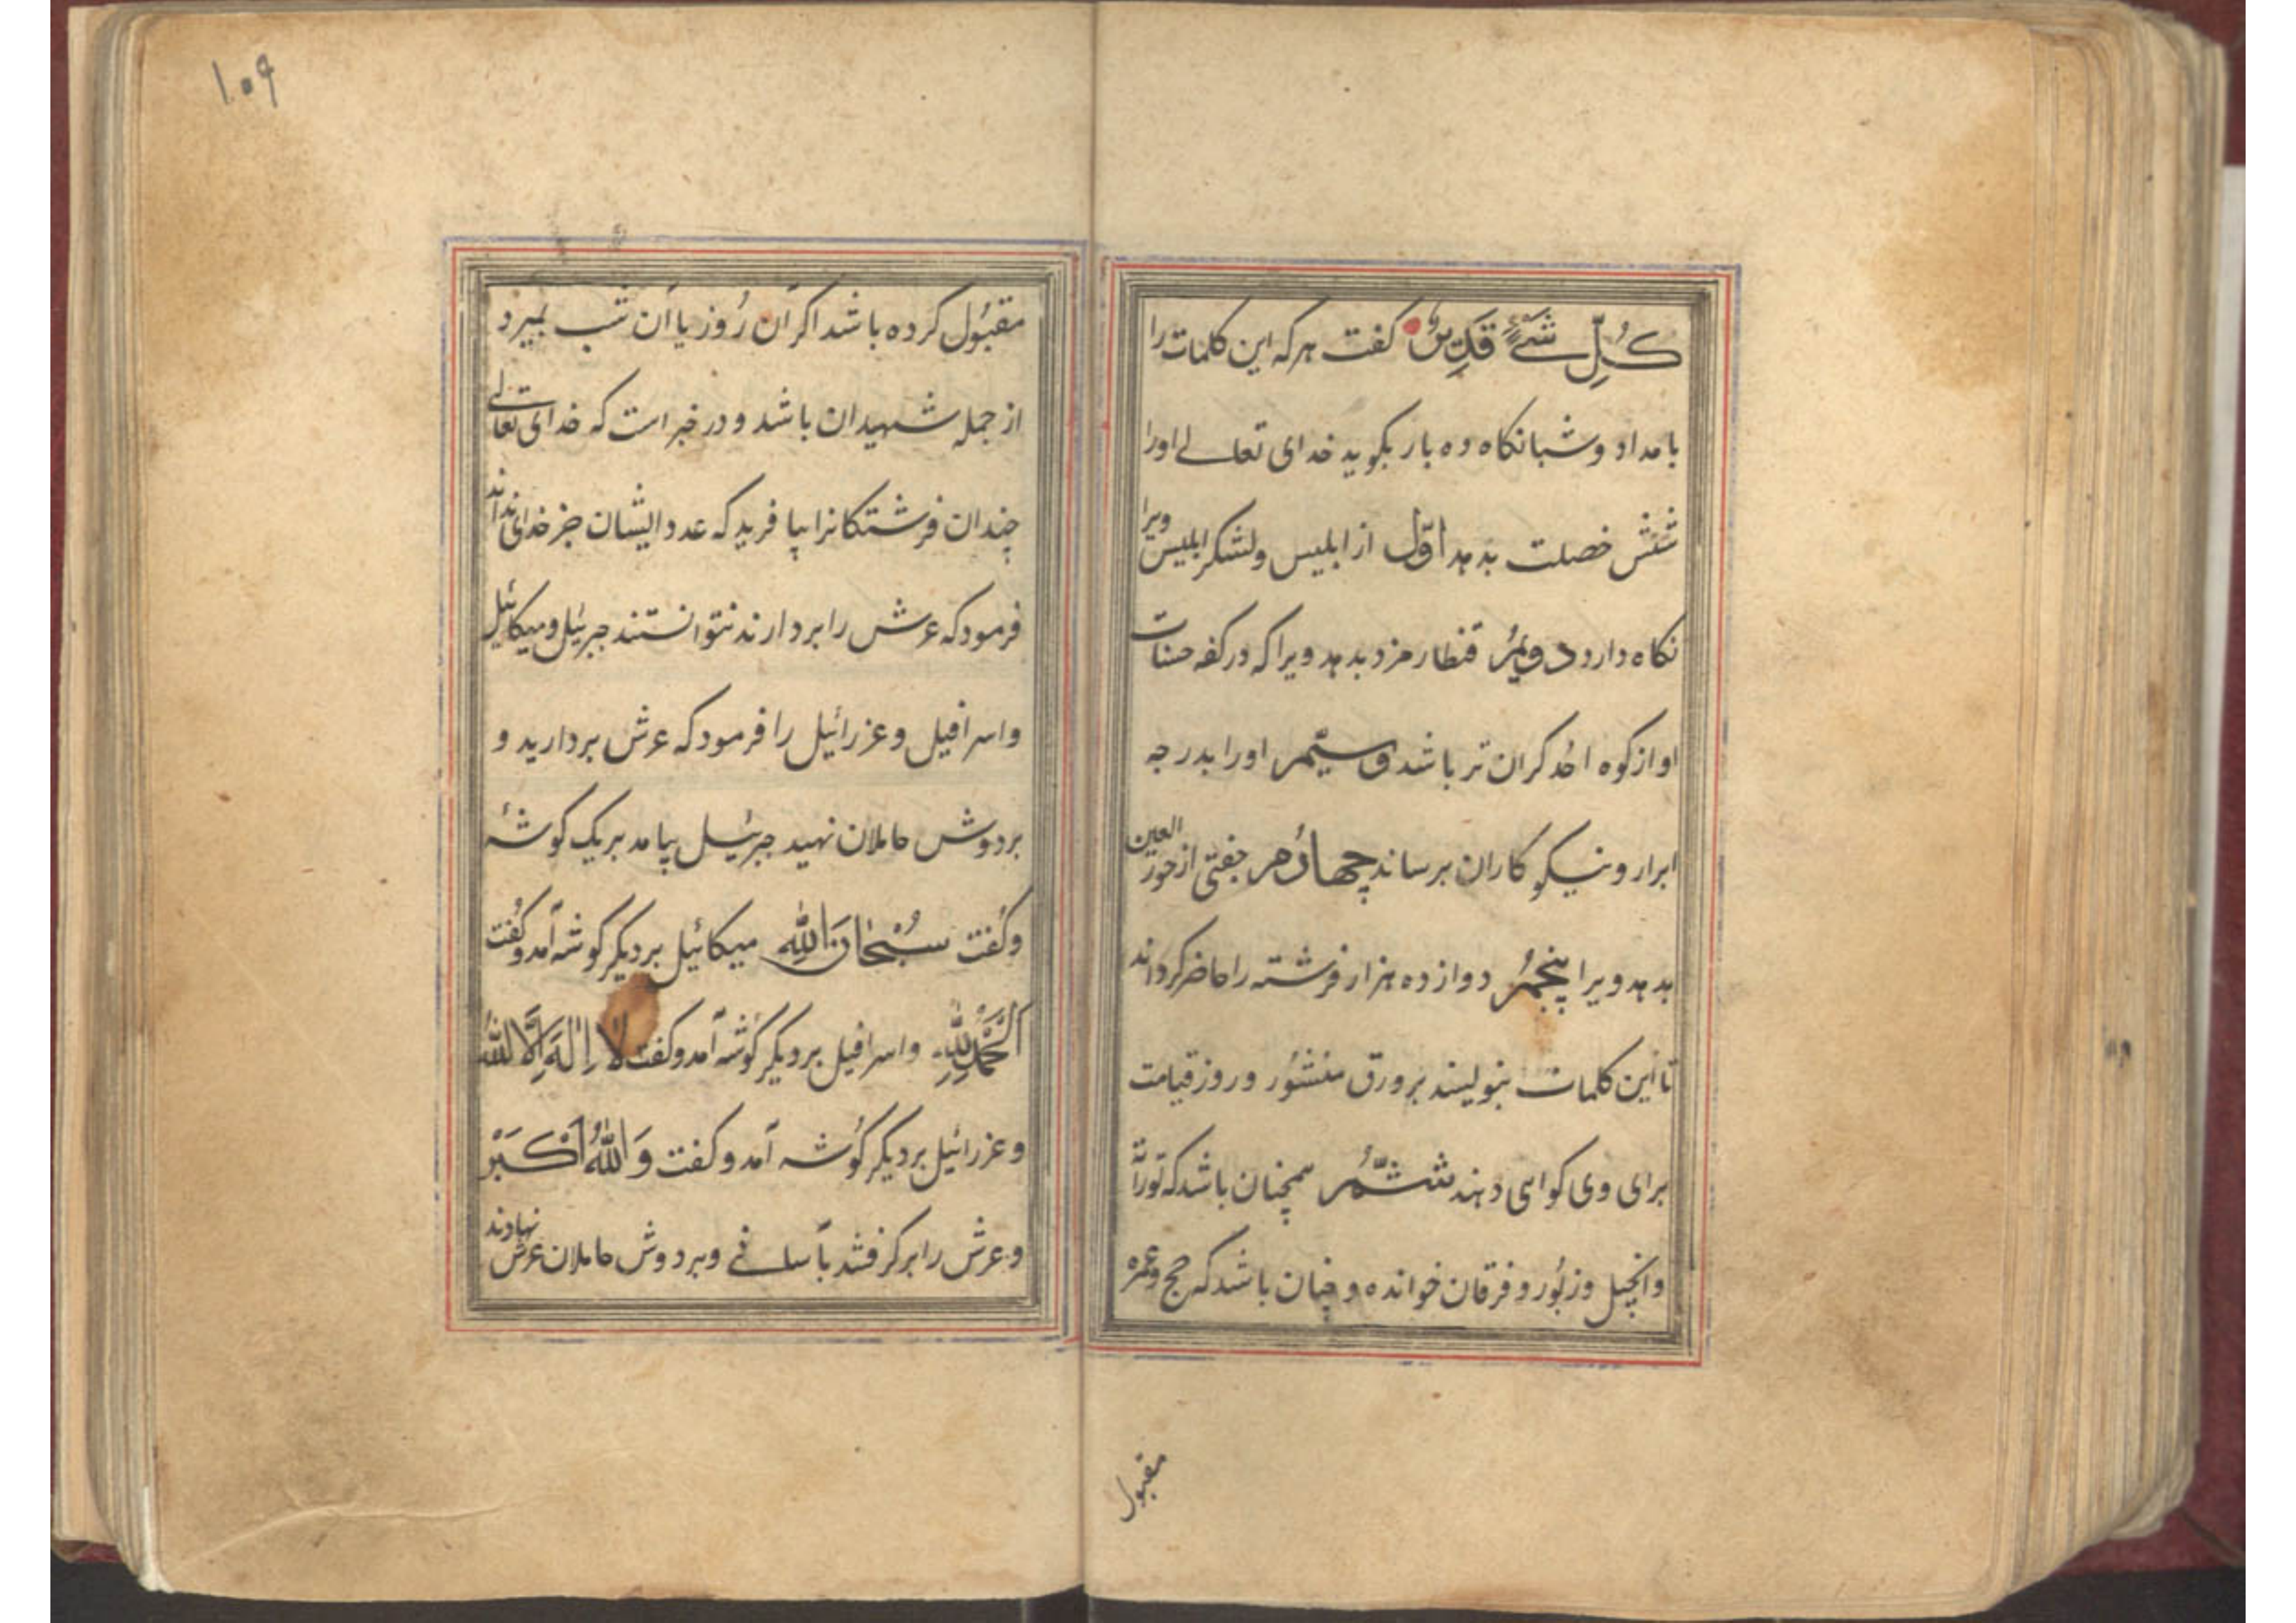 کُلِّ شَیْءٍ قَدِیرٌ گفت هر که این کلمات را
بامداد و شبانگاه ده بار بگوید خدای تعالی اورا
شش خصلت بدهد اوّل از ابلیس و لشکر ابلیس ویرا
نگاه دارد دویُم قنطار مزد بدهد ویرا که در کفه حسنات
او از کوه احُد کران تر باشد و سیّم اورا بدرجه
ابرار و نیکو کاران برساند چهارُم جفتی از حور العین
بدهد ویرا پنجمُ دوازده هزار فرشته را حاضر کرداند
تا این کلمات بنویسند بر ورق منشُور و روز قیامت
برای وی کواهی دهند ششّمُ همچنان باشد که توراة
و انجیل و زبُور و فرقان خوانده و چنان باشد که حج و عمره
مقبول
۱۰۹
مقبُول کرده باشد اکر آن رُوز یا آن شب بمیرد
از جمله شهیدان باشد و در خبر است که خدای تعالی
چندان فرشتکانرا بیافرید که عدد ایشان جز خدای نداند
فرمود که عرش را بردارند نتوانستند جبرئیل و میکائیل
و اسرافیل و عزرائیل را فرمود که عرش بردارید و
بر دوش حاملان نهید جبرئیل بیامد بر یک کوشهٔ
و کُفت سُبْحَانَ اللهِ میکائیل بر دیکر کوشه آمد و کُفت
الْحَمْدُ لِلّهِ و اسرافیل بر دیکر کوُشه آمد و کفت لَا اِلٰهَ اِلَّا اللهُ
و عزرائیل بر دیکر کوُشه آمد و کفت وَاللهُ اَکْبَرْ
و عرش را بر کرفتند بآسانی و بر دوش حاملان عرش نهادند